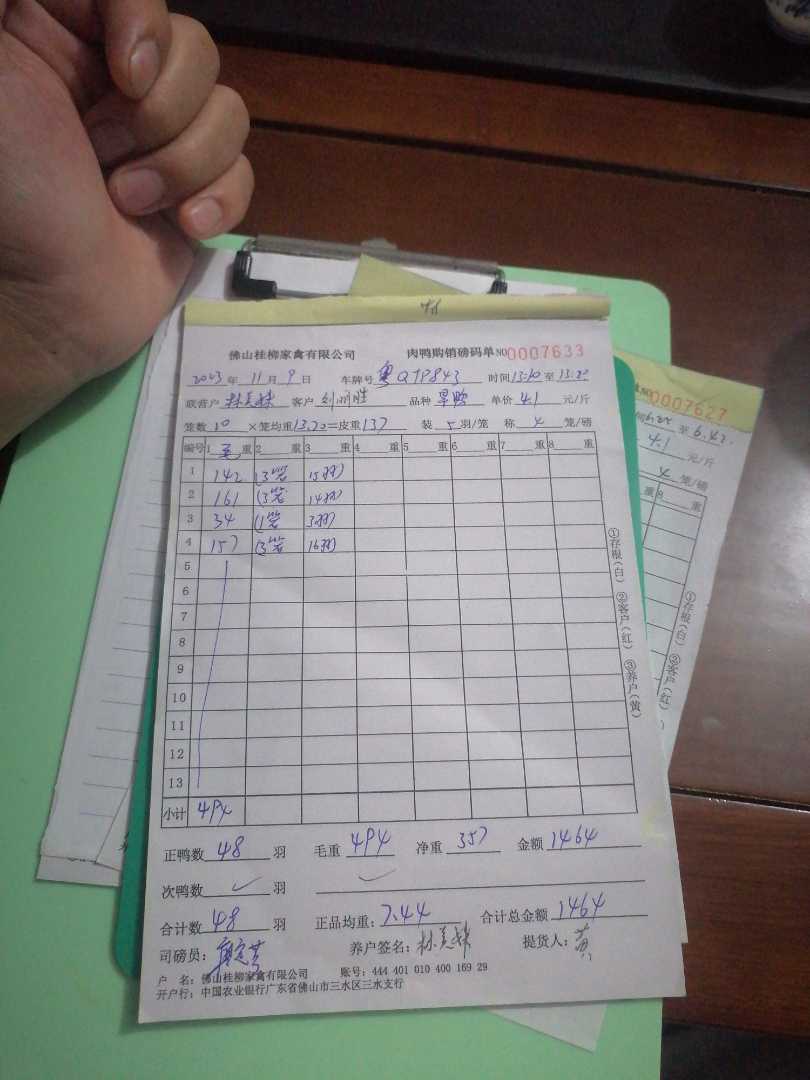 佛山桂柳家禽有限公司 肉鸭购销磅码单 NO 0007633
2023年 11月 9日 车牌号 粤QTP843 时间 13:10 至 13:20
联营户 林美妹 客户 刘丽胜 品种 旱鸭 单价 4.1 元/斤
笼数 10 ×笼均重 13.70 =皮重 137 装 5 羽/笼 称 4 笼/磅
编号 1 重 2 重 3 重 4 重 5 重 6 重 7 重 8 重
1 142 (3笼 15羽)
2 161 (3笼 14羽)
3 34 (1笼 3羽)
4 157 (3笼 16羽)
5
6
7
8
9
10
11
12
13
小计 494
正鸭数 48 羽 毛重 494 净重 357 金额 1464
次鸭数 羽
合计数 48 羽 正品均重: 7.44 合计总金额 1464
司磅员: 养户签名: 林美妹 提货人: 黄
户 名: 佛山桂柳家禽有限公司 账号: 444 401 010 400 169 29
开户行: 中国农业银行广东省佛山市三水区三水支行
①存根(白) ②客户(红) ③养户(黄)
NO 0007627
至 6.42
4.1 元/斤
4 笼/磅
重 8 重
①存根(白) ②客户(红)